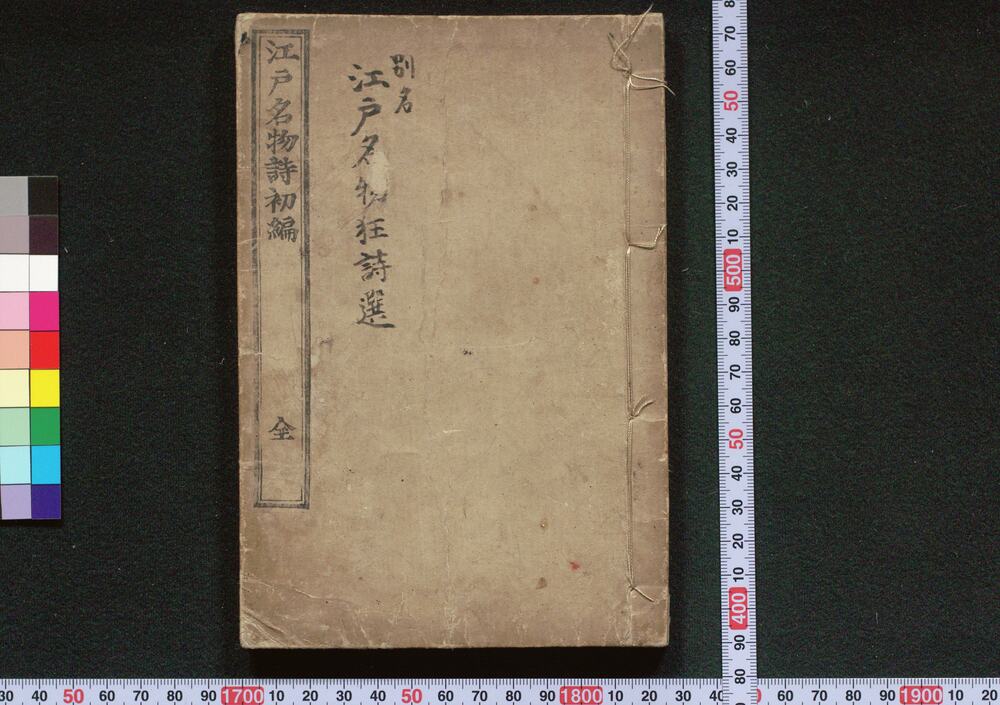 別名
江戸名物狂詩選
江戸名物詩初編 全
80
70
60
50
40
30
20
10
500
90
80
70
60
50
40
30
20
10
400
90
80
30 40 50 60 70 80 90 1700 10 20 30 40 50 60 70 80 90 1800 10 20 30 60 70 80 90 1900 10 20